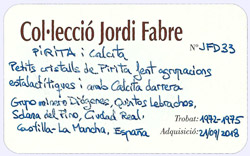 Col·lecció Jordi Fabre
PIRITA i Calcita
Nº JFD33
Petits cristalls de Pirita fent agrupacions
estalactítiques i amb Calcita darrera
Grupo minero Diógenes, Quintos Lebrachos,
Solana del Pino, Ciudad Real,
Castilla-La Mancha, España
Trobat: 1972-1975
Adquisició: 21/09/2018